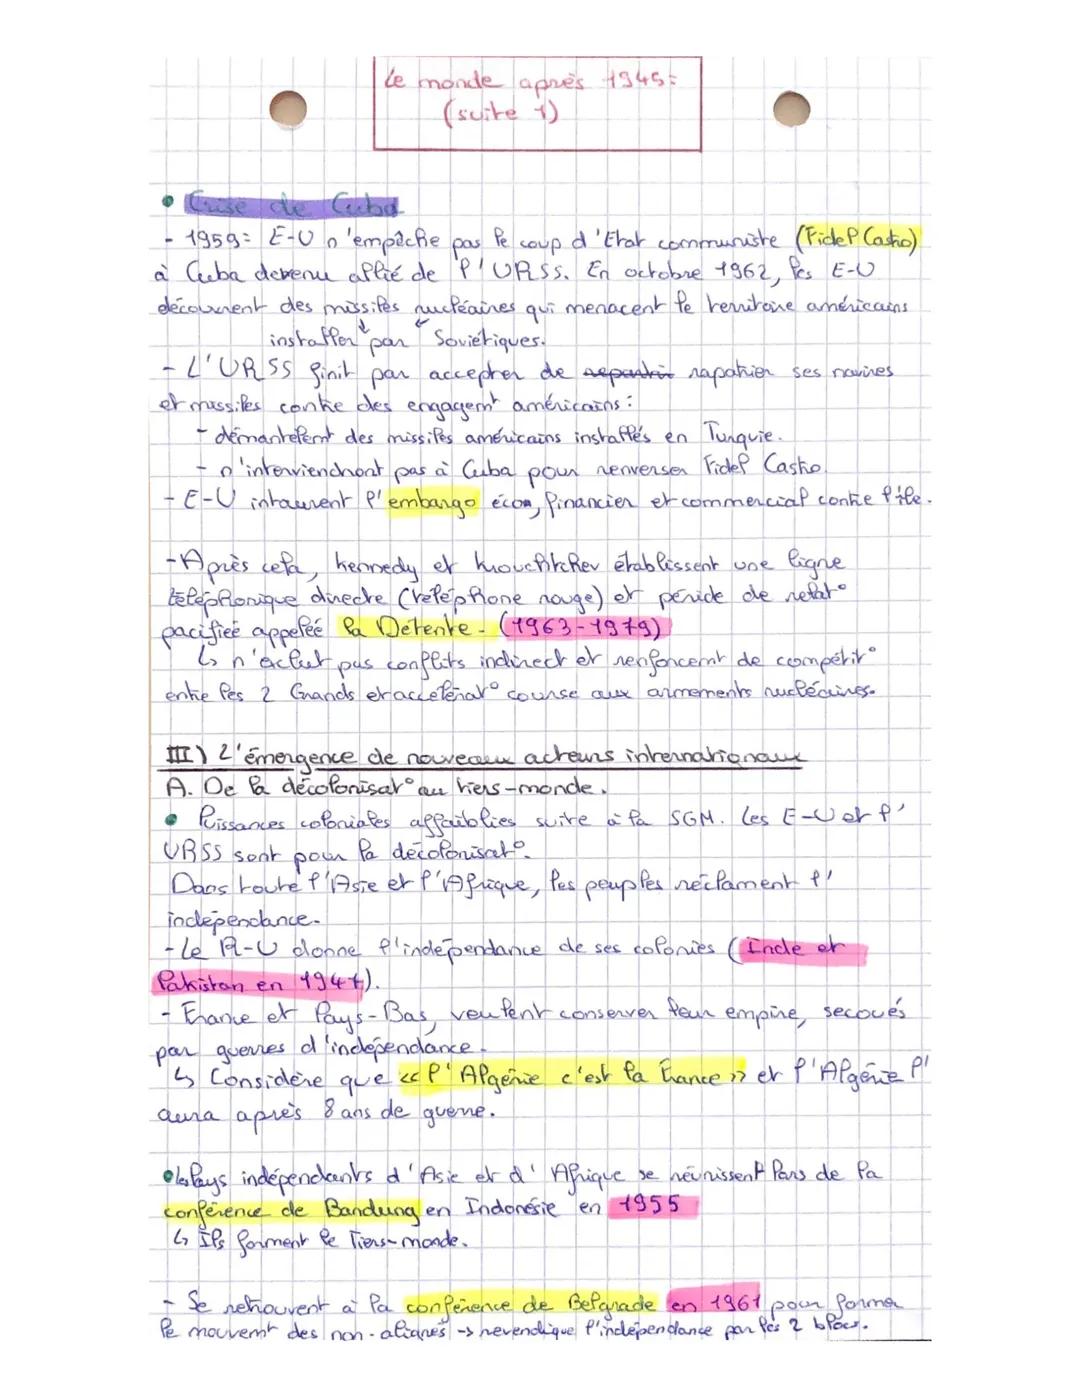 Le monde après 1945:
(suite 1)
• Crise de Cuba
- 1959: E-U n'empêche pas le coup d'Etat communiste (Fidel Castro)
à Cuba devenu allié de l'URSS. En octobre 1962, les E-U
découvrent des missiles nucléaires qui menacent le territoire américains
installer par Soviétiques.
- L'URSS finit par accepter de rapatrier ses navires
et missiles contre des engagemt américains :
- démantelemt des missiles américains installés en Turquie.
- n'interviendront pas à Cuba pour renverser Fidel Castro.
- E-U intaurent l'embargo écon, financier et commercial contre l'île.
- Après cela, kennedy et krouchtchev établissent une ligne
téléphonique directe (téléphone rouge) et péride de relat°
pacifiée appelée la Détente. (1963-1979)
↳ n'exclut pas conflits indirect et renforcemt de compétit°
entre les 2 Grands et accélérat° course aux armements nucléaires.
III) L'émergence de nouveaux acteurs internationaux
A. De la décolonisat° au tiers-monde.
• Puissances coloniales affaiblies suite à la SGM. Les E-U et l'
URSS sont pour la décolonisat°.
Dans toute l'Asie et l'Afrique, les peuples réclament l'
indépendance.
- Le R-U donne l'indépendance de ses colonies (Inde et
Pakistan en 1947).
- France et Pays-Bas, veulent conserver leur empire, secoués
par guerres d'indépendance.
↳ Considère que « l'Algérie c'est la France » et l'Algérie l'
aura après 8 ans de guerre.
• les Pays indépendants d'Asie et d'Afrique se réunissent lors de la
conférence de Bandung en Indonésie en 1955
↳ Ils forment le Tiers-monde.
- Se retrouvent à la conférence de Belgrade en 1961 pour former
le mouvemt des non-alignés → revendique l'indépendance par les 2 blocs.